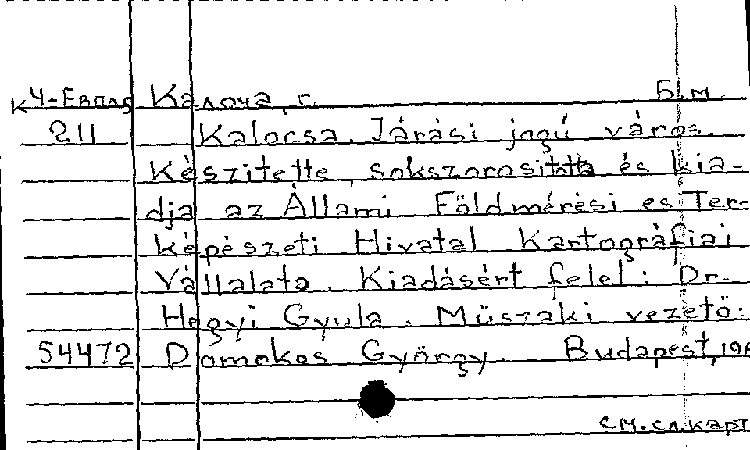 К4-Евпл Калоча, г. Б.м.
211 Kalocsa. Járási jogú város.
Készitette, sokszorositotta és kia-
dja az Állami Földmérési es Tér-
képészeti Hivatal Kartográfiai
Vállalata. Kiadásért felel: Dr.
Hegyi Gyula. Müszaki vezetö:
54472 Domokos György. Budapest, 196
см.сл.карт